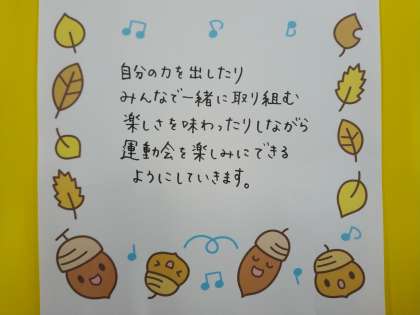 自分の力を出したり
みんなで一緒に取り組む
楽しさを味わったりしながら
運動会を楽しみにできる
ようにしていきます。